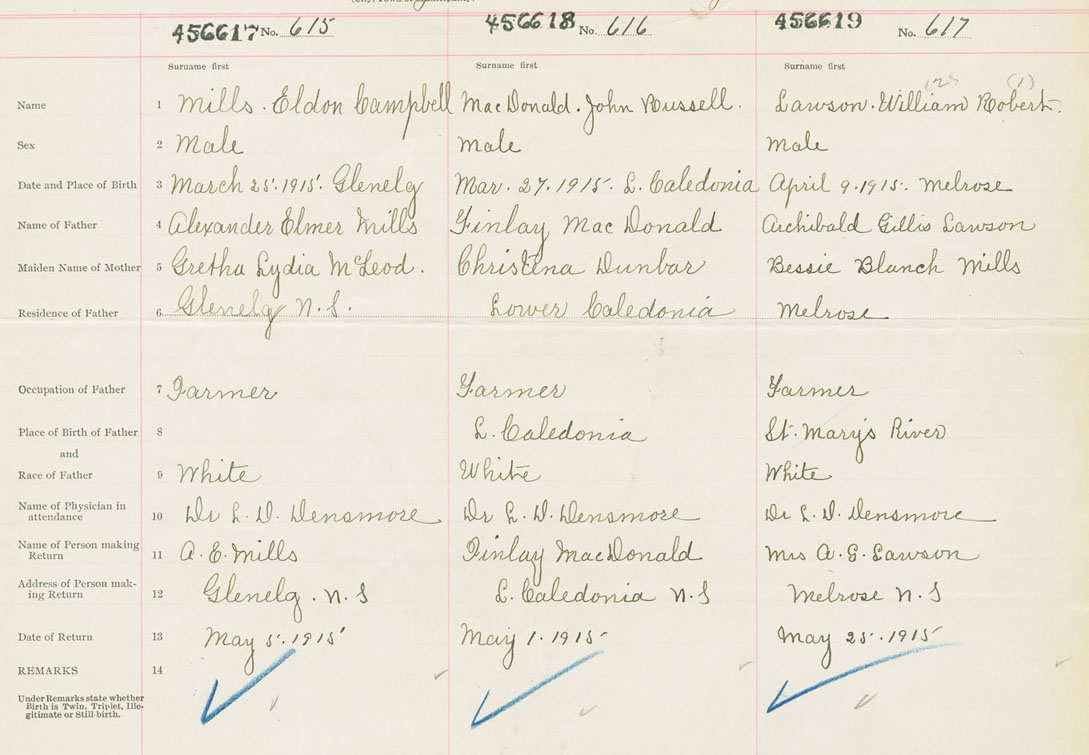 456617 No. 615 456618 No. 616 456619 No. 617
Surname first Surname first Surname first
(1)
Name 1 Mills. Eldon Campbell MacDonald. John Russell. Lawson. William Robert.
Sex 2 Male Male Male
Date and Place of Birth 3 March 25. 1915. Glenelg Mar. 27. 1915. L. Caledonia April 9. 1915. Melrose
Name of Father 4 Alexander Elmer Mills Finlay MacDonald Archibald Gillis Lawson
Maiden Name of Mother 5 Gretha Lydia McLeod. Christena Dunbar Bessie Blanch Mills
Residence of Father 6 Glenelg N.S. Lower Caledonia Melrose
Occupation of Father 7 Farmer Farmer Farmer
Place of Birth of Father 8 L. Caledonia St. Mary's River
and
Race of Father 9 White White White
Name of Physician in
attendance 10 Dr L. D. Densmore Dr L. D. Densmore Dr L. D. Densmore
Name of Person making
Return 11 A. E. Mills Finlay MacDonald Mrs A. G. Lawson
Address of Person mak-
ing Return 12 Glenelg. N.S L. Caledonia N.S Melrose N.S
Date of Return 13 May 5. 1915 May 1. 1915 May 25. 1915
REMARKS 14
Under Remarks state whether
Birth is Twin, Triplet, Ille-
gitimate or Still-birth.